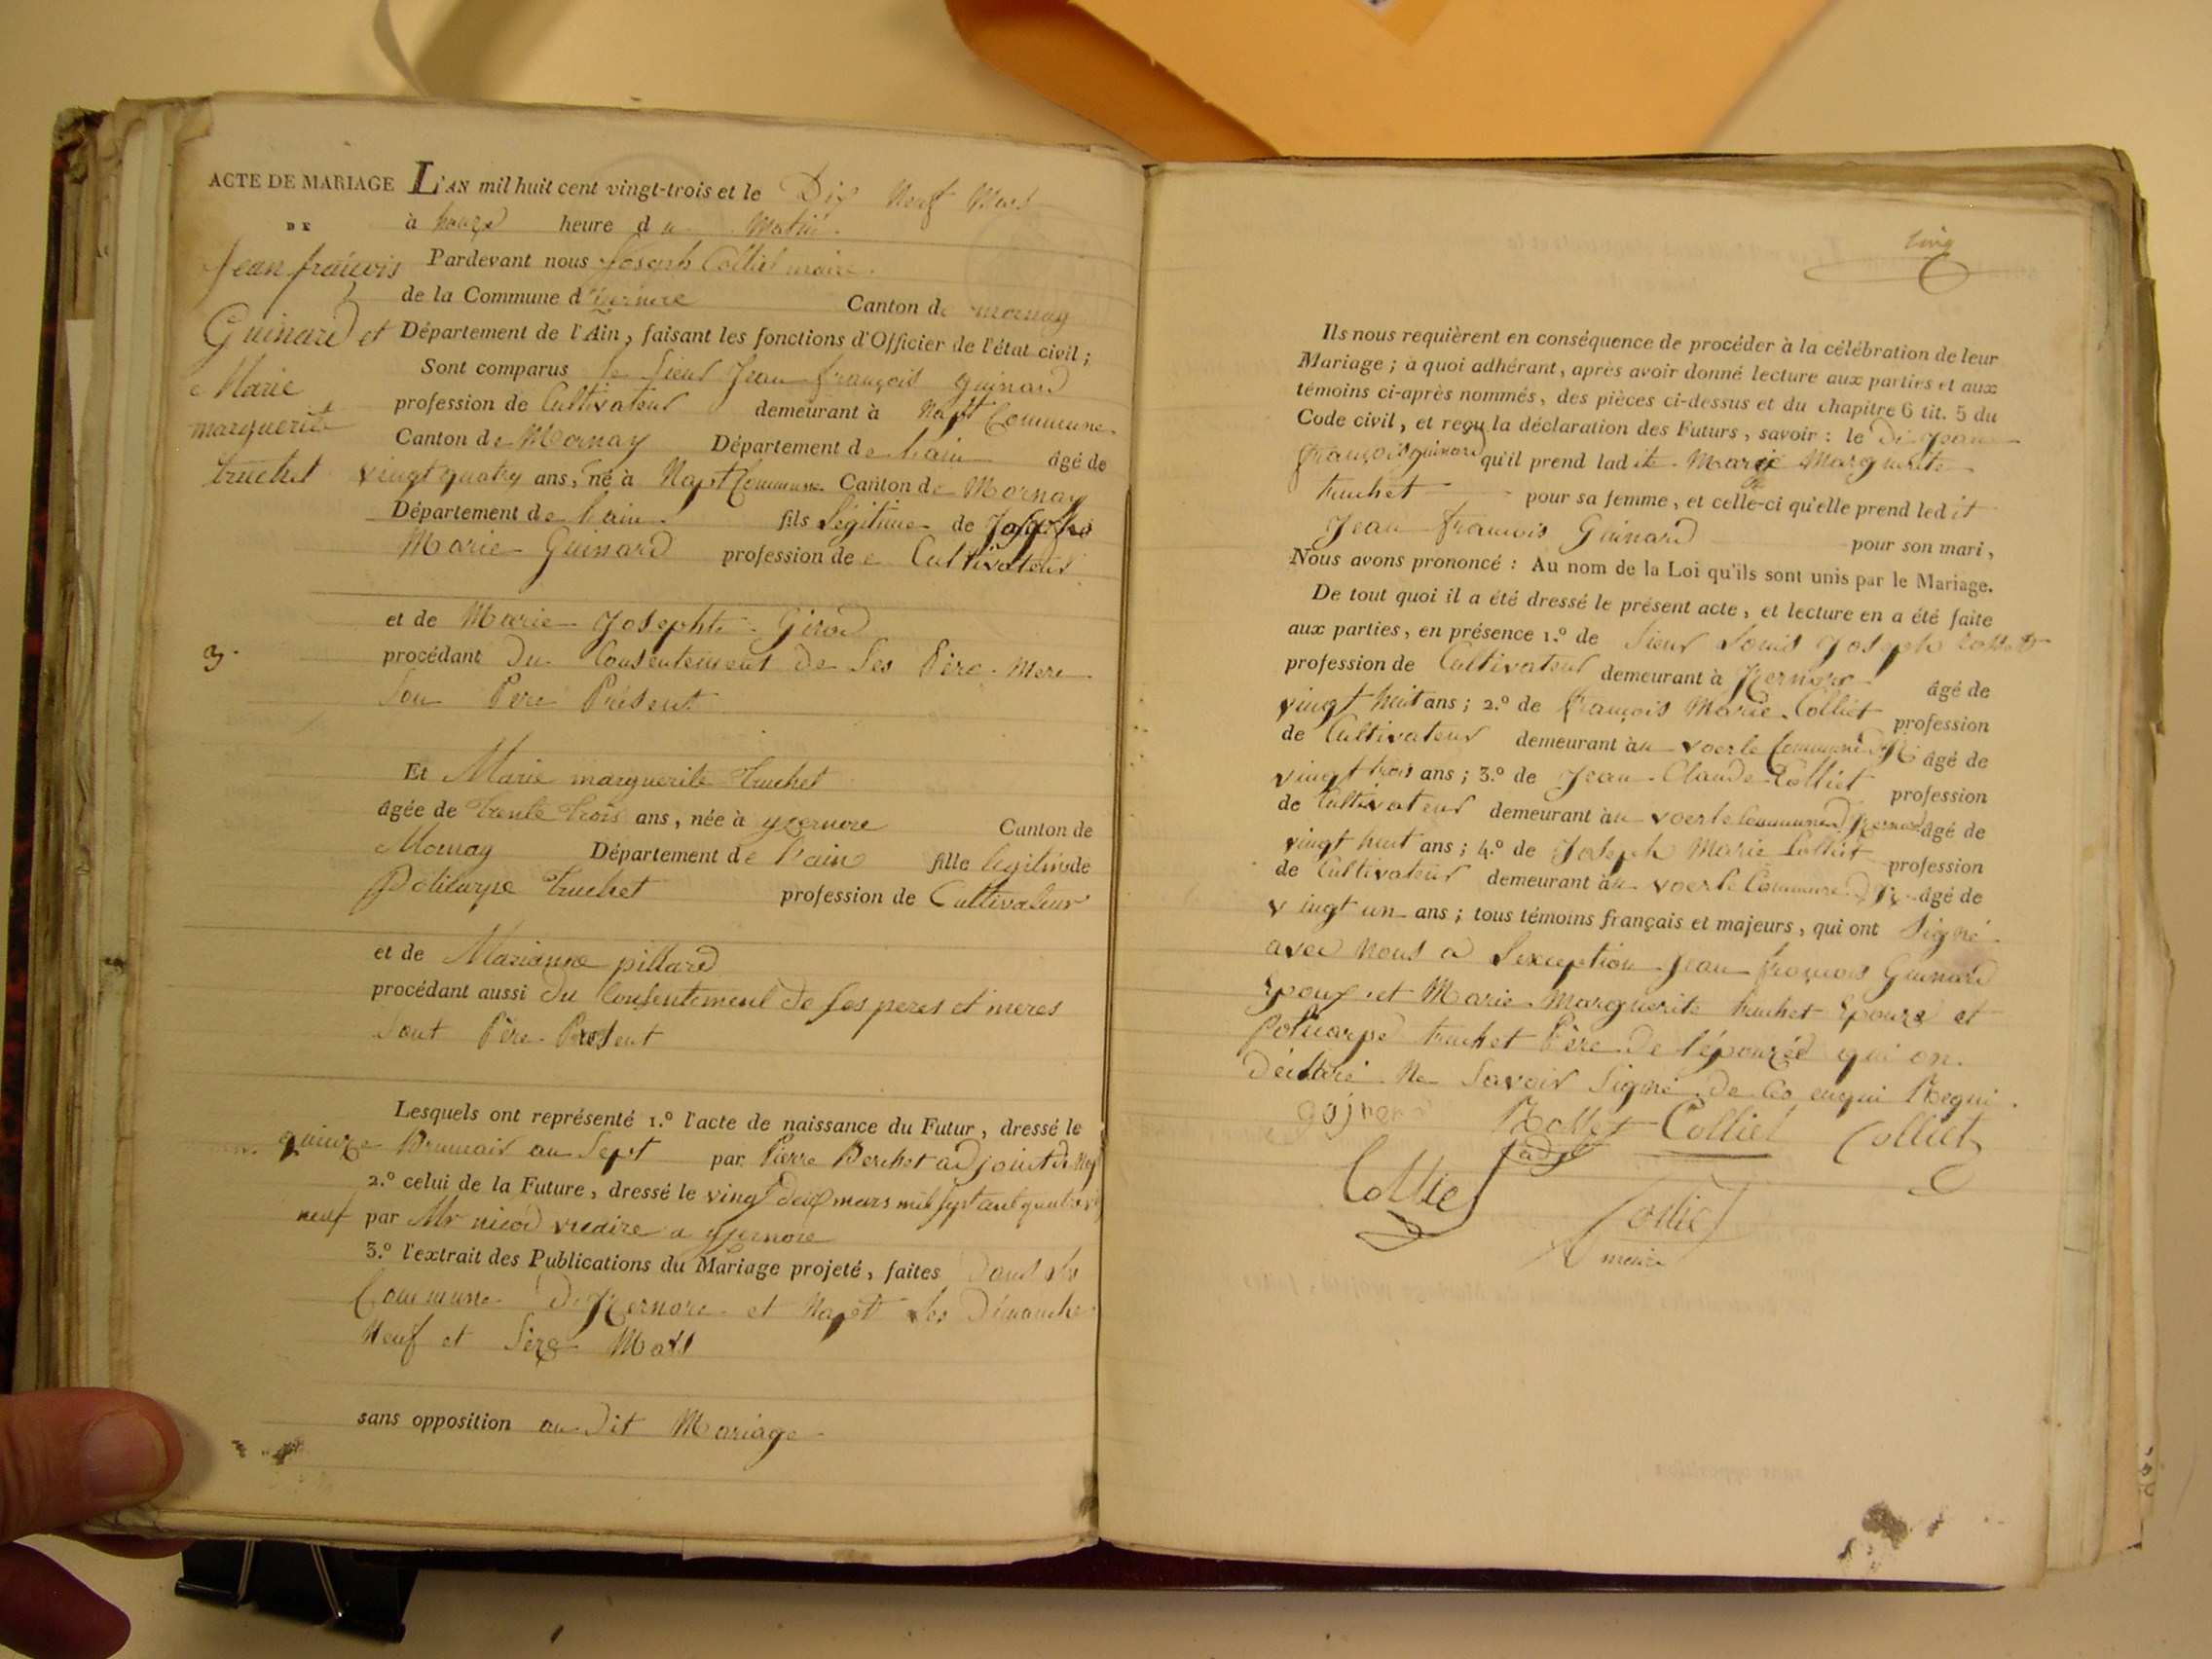 ACTE DE MARIAGE
DE
Jean françois
Guinard et
Marie
marguerite
truchet
3.
L'AN mil huit cent vingt-trois et le Dix Neuf Mars
à heure du Matin
Pardevant nous Joseph Colliet maire
de la Commune d' Canton de mornay
Département de l'Ain, faisant les fonctions d'Officier de l'état civil;
Sont comparus le Sieur Jean françois guinard
profession de Cultivateur demeurant à Napt Commune
Canton de Mornay Département de lain âgé de
vingt quatre ans, né à Napt Commune Canton de Mornay
Département de lain fils légitime de Joseph
Marie Guinard profession de Cultivateur
et de Marie Josephte Girod
procédant du Consentement de Ses Père Mere
Son Pere Présent
Et Marie marguerite truchet
âgée de trente trois ans, née à yzernore Canton de
Mornay Département de l'ain fille legitime de
Policarpe truchet profession de Cultivateur
et de Marianne pillard
procédant aussi du Consentement de ses peres et meres
Sont Père Present
Lesquels ont représenté 1.º l'acte de naissance du Futur, dressé le
quinze Brumair an Sept par Pierre Berchet adjoint de
2.º celui de la Future, dressé le vingt deux mars mil sept cent quatre
neuf par Mr nicod vicaire a yzernore
3.º l'extrait des Publications du Mariage projeté, faites dans les
Commune d'Izernore et Napt les Dimanche
Neuf et Seize Mars
sans opposition au dit Mariage
cinq
Ils nous requièrent en conséquence de procéder à la célébration de leur
Mariage; à quoi adhérant, après avoir donné lecture aux parties et aux
témoins ci-après nommés, des pièces ci-dessus et du chapitre 6 tit. 5 du
Code civil, et reçu la déclaration des Futurs, savoir: le dit Jean
françois guinard qu'il prend ladite Marie Marguerite
truchet pour sa femme, et celle-ci qu'elle prend ledit
Jean francois Guinard pour son mari,
Nous avons prononcé: Au nom de la Loi qu'ils sont unis par le Mariage.
De tout quoi il a été dressé le présent acte, et lecture en a été faite
aux parties, en présence 1.º de Sieur Louis Joseph
profession de Cultivateur demeurant à Izernore âgé de
vingt huit ans; 2.º de françois Marie Colliet profession
de Cultivateur demeurant au voerle Commune d'Iz âgé de
vingt trois ans; 3.º de Jean Claude Colliet profession
de Cultivateur demeurant au voerle Commune d'Izernore âgé de
vingt huit ans; 4.º de Joseph Marie Colliet profession
de Cultivateur demeurant au voerle Commune d'Iz âgé de
vingt un ans; tous témoins français et majeurs, qui ont Signé
avec nous a Lexception Jean françois Guinard
Epoux et Marie Marguerite truchet Epouze et
Policarpe truchet Père de l'épouzée qui on
déclaré Ne Savoir Signé de Ce enqui Requi
Colliet Colliet
Colliet
Colliet
maire